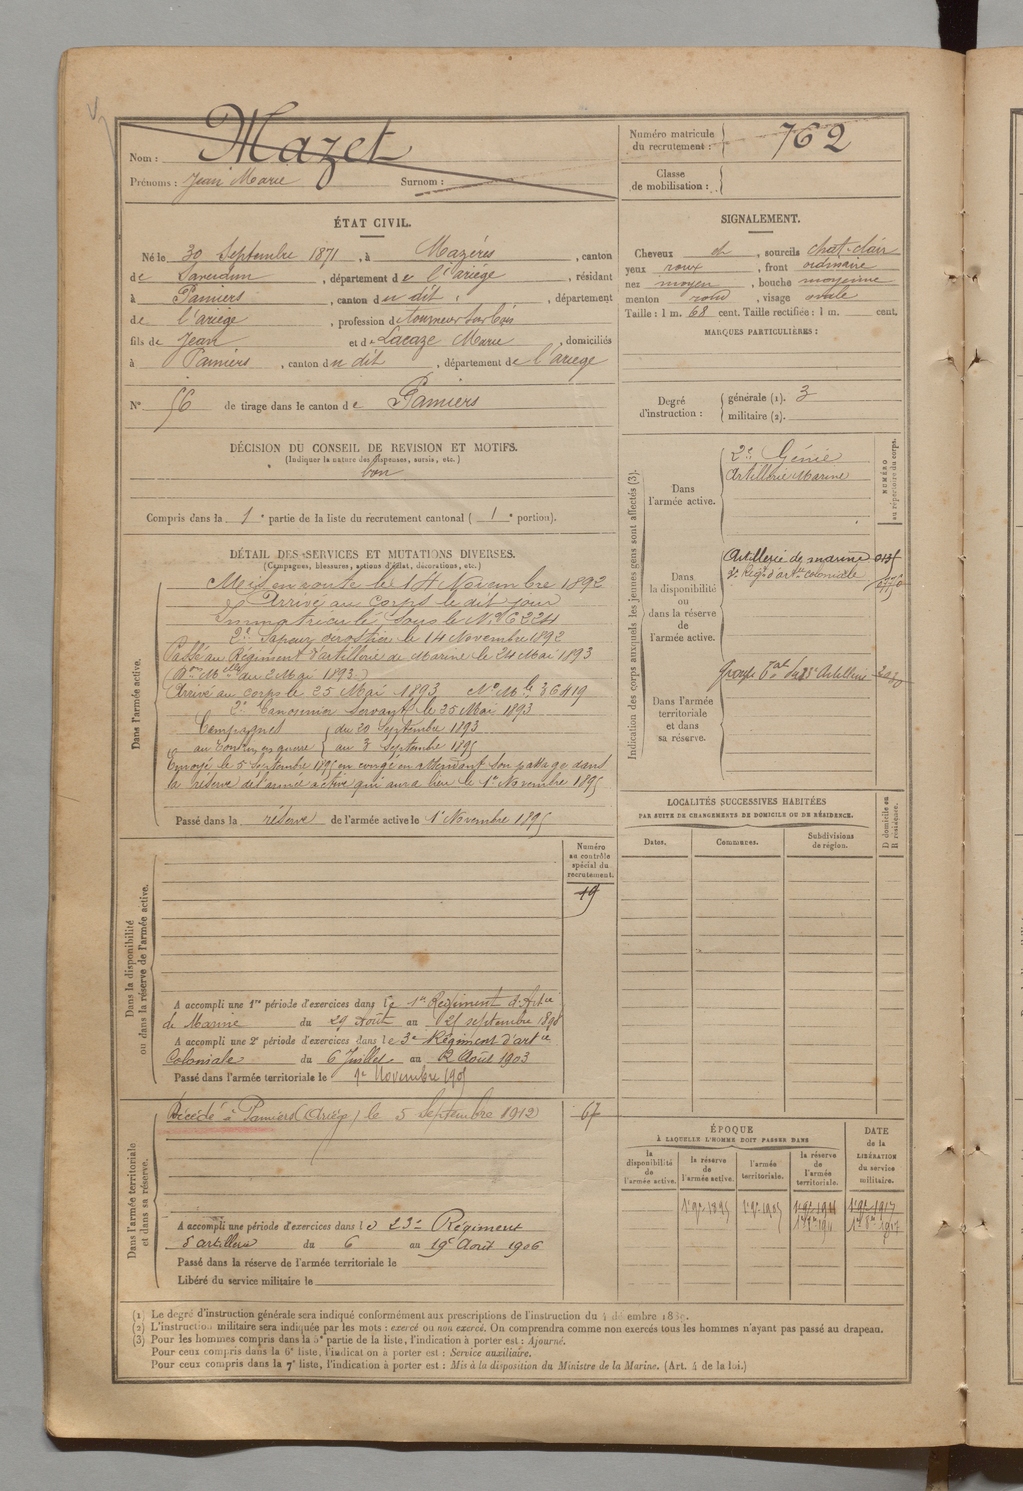 Nom : Mazet
Prénoms : Jean Marie Surnom :
Numéro matricule du recrutement : 762
Classe de mobilisation :
ÉTAT CIVIL.
Né le 30 Septembre 1871, à Mazéres, canton
de Saverdun, département de l'ariége, résidant
à Pamiers, canton du dit, département
de l'ariége, profession de tourneur sur bois
fils de Jean et de Lacaze Marie, domiciliés
à Pamiers, canton du dit, département de l'ariege
N° 56 de tirage dans le canton de Pamiers
DÉCISION DU CONSEIL DE REVISION ET MOTIFS.
(Indiquer la nature des dispenses, sursis, etc.)
bon
Compris dans la 1e partie de la liste du recrutement cantonal ( 1e portion).
DÉTAIL DES SERVICES ET MUTATIONS DIVERSES.
(Campagnes, blessures, actions d'éclat, décorations, etc.)
Dans l'armée active.
Mis en route le 14 Novembre 1892
Arrivé au corps le dit jour
Immatriculé sous le N° 6224
2e Sapeur aérostier le 14 Novembre 1892
Passé au Régiment d'artillerie de Marine le 24 Mai 1893
Arrivé au corps le 25 Mai 1893 No Mle 36419
2e Canonnier servant le 25 Mai 1893
Campagnes du 20 Septembre 1893
au Tonkin en guerre au 3 Septembre 1895
Envoyé le 5 Septembre 1895 en congé en attendant son passage dans
la réserve de l'armée active qui aura lieu le 1er Novembre 1895
Passé dans la réserve de l'armée active le 1er Novembre 1895
Dans la disponibilité ou dans la réserve de l'armée active.
Numéro au contrôle spécial du recrutement.
19
A accompli une 1re période d'exercices dans le 1er Régiment d'Artie
de Marine du 29 Août au 25 septembre 1898
A accompli une 2e période d'exercices dans le 3e Régiment d'artie
Coloniale du 6 Juillet au 2 Août 1903
Passé dans l'armée territoriale le 1er Novembre 1905
Dans l'armée territoriale et dans sa réserve.
Décédé à Pamiers (Ariège) le 5 Septembre 1912
67
A accompli une période d'exercices dans le 23e Régiment
d'artillerie du 6 au 19 Août 1906
Passé dans la réserve de l'armée territoriale le
Libéré du service militaire le
SIGNALEMENT.
Cheveux ch, sourcils chat-clair
yeux roux, front ordinaire
nez moyen, bouche moyenne
menton rond, visage ovale
Taille : 1 m. 68 cent. Taille rectifiée : 1 m. cent.
MARQUES PARTICULIÈRES :
Degré d'instruction : générale (1). 3
militaire (2).
Indication des corps auxquels les jeunes gens sont affectés (3).
NUMÉRO au répertoire du corps.
Dans l'armée active.
2e Génie
Artillerie Marine
Dans la disponibilité ou dans la réserve de l'armée active.
Artillerie de marine
3e Régt d'artie coloniale
Dans l'armée territoriale et dans sa réserve.
LOCALITÉS SUCCESSIVES HABITÉES
PAR SUITE DE CHANGEMENTS DE DOMICILE OU DE RÉSIDENCE.
Dates. Communes. Subdivisions de région. D domicile ou R résidence.
ÉPOQUE
À LAQUELLE L'HOMME DOIT PASSER DANS
la disponibilité de l'armée active.
la réserve de l'armée active.
l'armée territoriale.
la réserve de l'armée territoriale.
DATE de la LIBÉRATION du service militaire.
1er 9bre 1895 1er 9bre 1905
(1) Le degré d'instruction générale sera indiqué conformément aux prescriptions de l'instruction du
(2) L'instruction militaire sera indiquée par les mots : exercé ou non exercé. On comprendra comme non exercés tous les hommes n'ayant pas passé au drapeau.
(3) Pour les hommes compris dans la 5e partie de la liste, l'indication à porter est : Ajourné.
Pour ceux compris dans la 6e liste, l'indication à porter est : Service auxiliaire.
Pour ceux compris dans la 7e liste, l'indication à porter est : Mis à la disposition du Ministre de la Marine. (Art. 4 de la loi.)